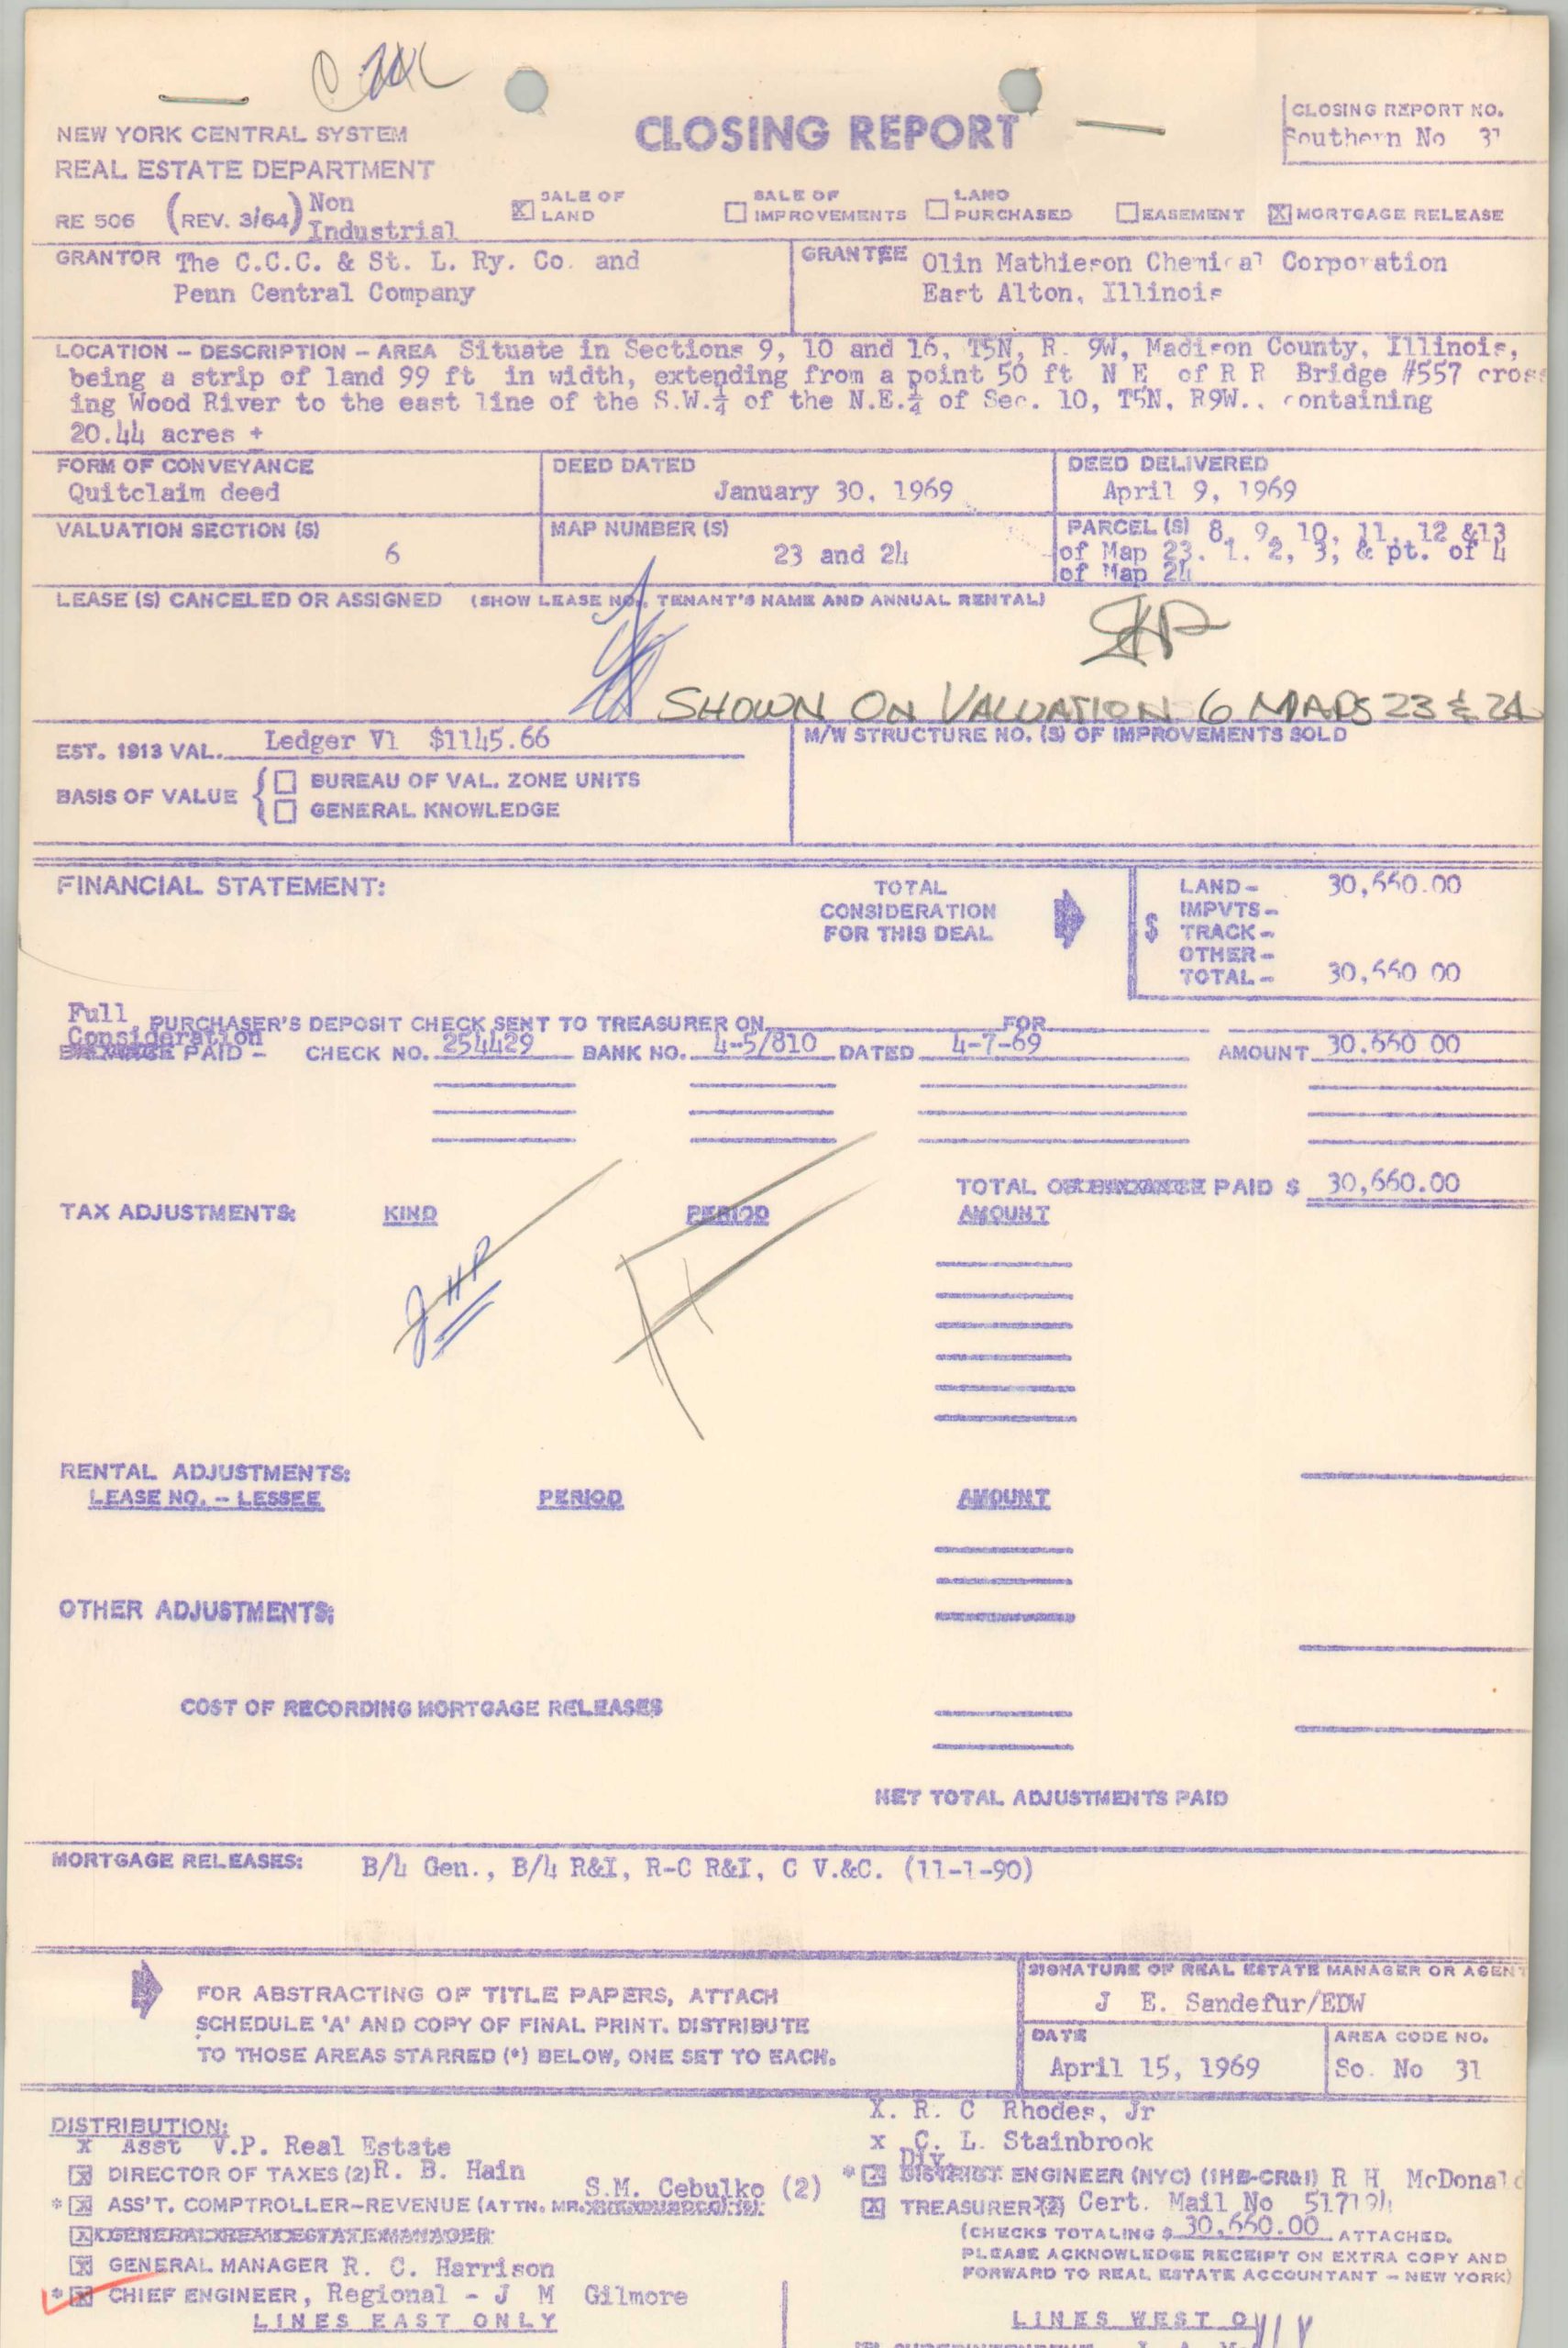 CLOSING REPORT
CLOSING REPORT NO.
Southern No 31
NEW YORK CENTRAL SYSTEM
REAL ESTATE DEPARTMENT
RE 506 (REV. 3/64) Non Industrial
SALE OF LAND SALE OF IMPROVEMENTS LAND PURCHASED EASEMENT MORTGAGE RELEASE
GRANTOR The C.C.C. & St. L. Ry. Co. and
Penn Central Company
GRANTEE Olin Mathieson Chemical Corporation
East Alton, Illinois
LOCATION - DESCRIPTION - AREA Situate in Sections 9, 10 and 16, T5N, R. 9W, Madison County, Illinois,
being a strip of land 99 ft in width, extending from a point 50 ft N E of R R Bridge #557 cross
ing Wood River to the east line of the S.W.¼ of the N.E.¼ of Sec. 10, T5N, R9W., containing
20.44 acres +
FORM OF CONVEYANCE
Quitclaim deed
DEED DATED
January 30, 1969
DEED DELIVERED
April 9, 1969
VALUATION SECTION (S)
6
MAP NUMBER (S)
23 and 24
PARCEL (S) 8, 9, 10, 11, 12 &13
of Map 23. 1. 2, 3, & pt. of 4
of Map 24
LEASE (S) CANCELED OR ASSIGNED (SHOW LEASE NO., TENANT'S NAME AND ANNUAL RENTAL)
SHOWN ON VALUATION 6 MAPS 23 & 24
EST. 1913 VAL. Ledger Vl $1145.66
M/W STRUCTURE NO. (S) OF IMPROVEMENTS SOLD
BASIS OF VALUE
BUREAU OF VAL. ZONE UNITS
GENERAL KNOWLEDGE
FINANCIAL STATEMENT:
TOTAL CONSIDERATION FOR THIS DEAL
$
LAND- 30,660.00
IMPVTS-
TRACK-
OTHER-
TOTAL- 30,660 00
Full
PURCHASER'S DEPOSIT CHECK SENT TO TREASURER ON FOR
Consideration
PAID - CHECK NO. 254429 BANK NO. 4-5/810 DATED 4-7-69 AMOUNT 30.660 00
TOTAL PAID $ 30,660.00
TAX ADJUSTMENTS: KIND PERIOD AMOUNT
JHP
RENTAL ADJUSTMENTS:
LEASE NO. - LESSEE PERIOD AMOUNT
OTHER ADJUSTMENTS:
COST OF RECORDING MORTGAGE RELEASES
NET TOTAL ADJUSTMENTS PAID
MORTGAGE RELEASES: B/4 Gen., B/4 R&I, R-C R&I, C V.&C. (11-1-90)
FOR ABSTRACTING OF TITLE PAPERS, ATTACH
SCHEDULE 'A' AND COPY OF FINAL PRINT. DISTRIBUTE
TO THOSE AREAS STARRED (*) BELOW, ONE SET TO EACH.
SIGNATURE OF REAL ESTATE MANAGER OR AGENT
J E. Sandefur/EDW
DATE
April 15, 1969
AREA CODE NO.
So. No 31
DISTRIBUTION:
X Asst V.P. Real Estate
DIRECTOR OF TAXES (2) R. B. Hain
S.M. Cebulko (2)
* ASS'T. COMPTROLLER-REVENUE (ATTN. MR.
GENERAL REAL ESTATE MANAGER
GENERAL MANAGER R. C. Harrison
* CHIEF ENGINEER, Regional - J M Gilmore
LINES EAST ONLY
X. R. C Rhodes, Jr
x C. L. Stainbrook
Div.
* DISTRICT ENGINEER (NYC) (IHB-CR&I) R H McDonald
TREASURER (2) Cert. Mail No 517194
(CHECKS TOTALING $ 30,660.00 ATTACHED.
PLEASE ACKNOWLEDGE RECEIPT ON EXTRA COPY AND
FORWARD TO REAL ESTATE ACCOUNTANT - NEW YORK)
LINES WEST